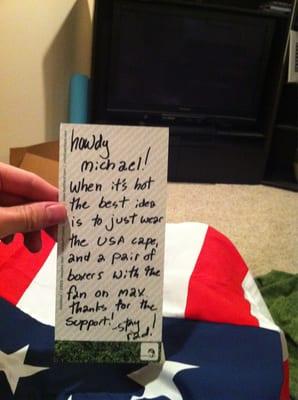 howdy
michael!
When it's hot
the best idea
is to just wear
the USA cape,
and a pair of
boxers with the
fan on max.
Thanks for the
support! -stay
rad!